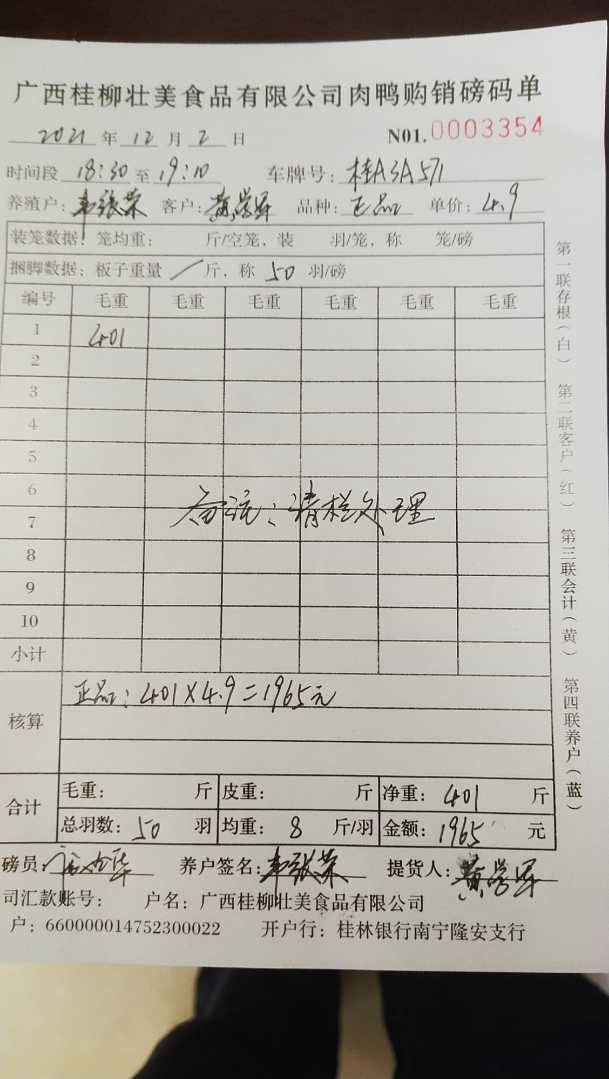 广西桂柳壮美食品有限公司肉鸭购销磅码单
2021 年 12 月 2 日 N01.0003354
时间段 18:30 至 19:10 车牌号: 桂A3A571
养殖户: 韦张荣 客户: 黄学军 品种: 正品 单价: 4.9
装笼数据: 笼均重: 斤/空笼, 装 羽/笼, 称 笼/磅
捆脚数据: 板子重量 / 斤, 称 50 羽/磅
编号 毛重 毛重 毛重 毛重 毛重 毛重
1 401
2
3
4
5
6
备注: 清栏处理
7
8
9
10
小计
核算 正品: 401×4.9=1965元
合计 毛重: 斤 皮重: 斤 净重: 401 斤
总羽数: 50 羽 均重: 8 斤/羽 金额: 1965 元
磅员: 养户签名: 韦张荣 提货人: 黄学军
司汇款账号: 户名: 广西桂柳壮美食品有限公司
户: 660000014752300022 开户行: 桂林银行南宁隆安支行
第一联存根(白) 第二联客户(红) 第三联会计(黄) 第四联养户(蓝)